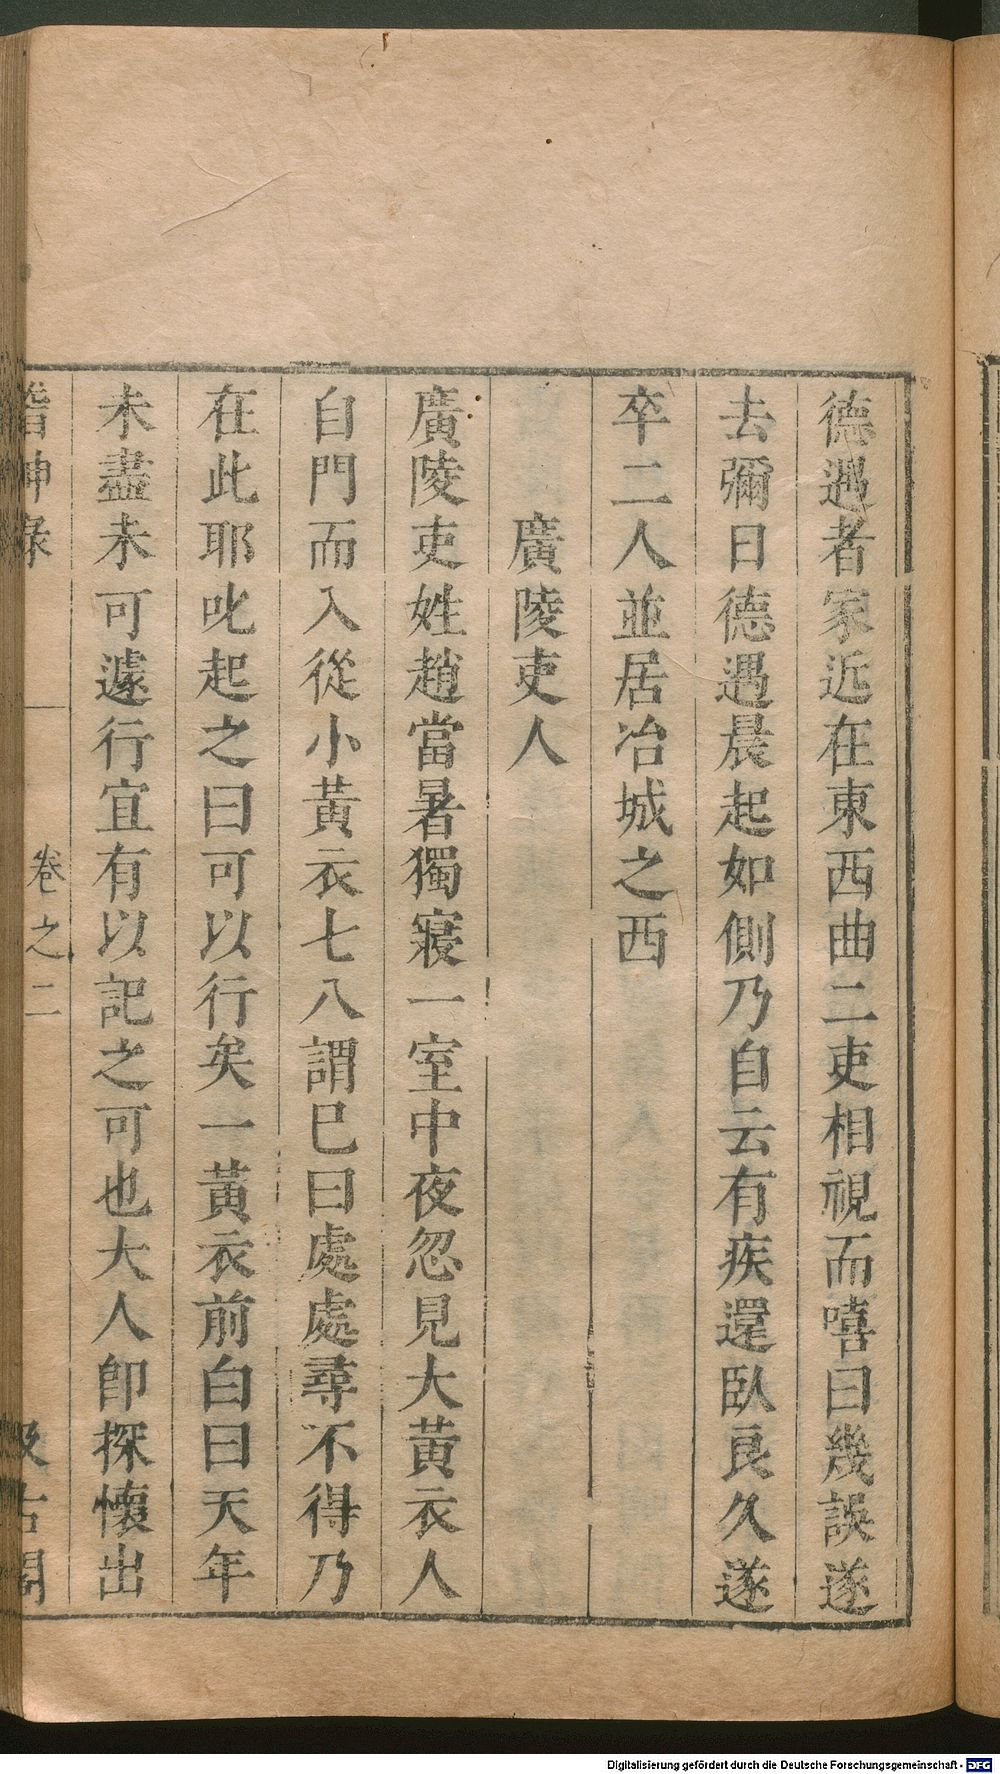 德遇者家近在東西曲二吏相視而嘻曰幾誤遂
去彌日德遇晨起如側乃自云有疾還臥良久遂
卒二人並居冶城之西
廣陵吏人
廣陵吏姓趙當暑獨寢一室中夜忽見大黃衣人
自門而入從小黃衣七八謂巳曰處處尋不得乃
在此耶叱起之曰可以行矣一黃衣前白曰天年
未盡未可遽行宜有以記之可也大人卽探懷出
稽神錄 卷之二 汲古閣
Digitalisierung gefördert durch die Deutsche Forschungsgemeinschaft - DFG